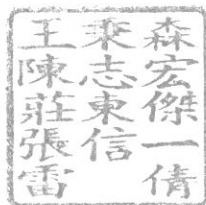 森宏傑一倩
乘志東信
王陳莊張雷